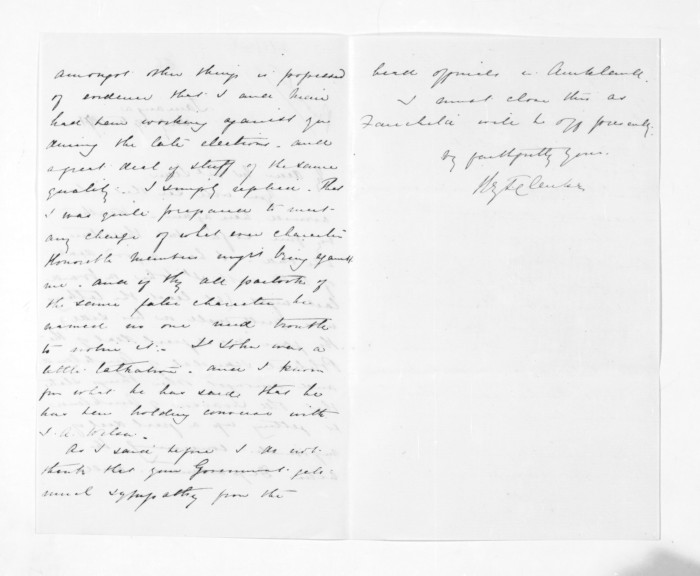 amongst other things is professed
of evidence that I and Mair
had been working against you
during the late elections. and
a great deal of stuff of the same
quality. I simply replied. That
I was quite prepared to meet
any charge of what ever character
Honorable members might bring against
me. and if they all partook of
the same character he
named no one need trouble
to notice it. St John was a
little. and I know
from what he has said that he
has been holding converse with
J. A. Wilson.
As I said before I do not
think that your Government gets
much sympathy from the
head officials in Auckland.
I must close this as
will be off presently.
Very faithfully yours.
H. T. Clarke